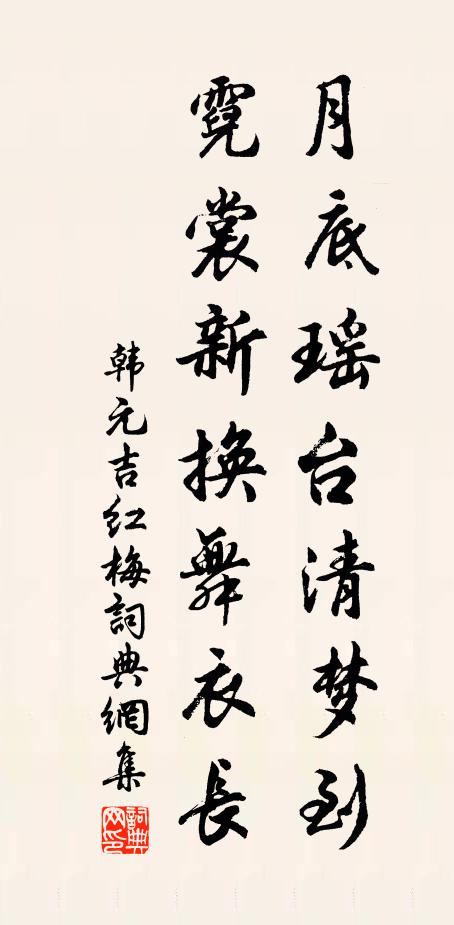 月底瑶台清梦到
霓裳新换舞衣長
韩元吉红梅詞典網集
詞典网印